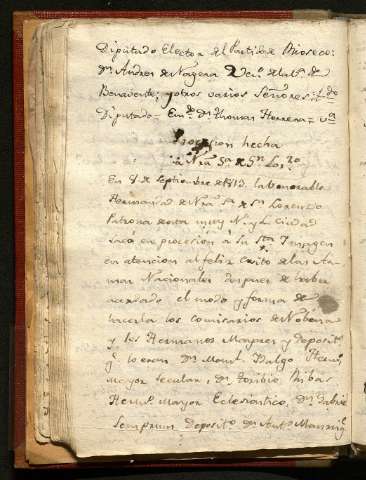 Diputado Elector del Partido de Rioseco:
Dn. Andres de Nagera Vecº. de la Vª. de
Benavente; y otros varios Señores:
Diputado
Procesion hecha
à Nra. Sª. de Sn. Lorzo
En 8 de Septiembre de 1813. la Venerable
Hermandad de Nra. Sª. de Sn. Lorenzo
Patrona de esta muy N. y L. Ciudad
Sacó en procesion à la Sta. Ymagen
en atencion al feliz exito de las Ar-
mas Nacionales despues de haber
acordado el modo y forma de
hacerla los Comisarios de Nobena
y los Hermanos Mayores y Deposito.
q. lo eran Dn. Manl. Hidalgo Herno.
mayor secular, Dn. Toribio Ribas
Hermo. Mayor Eclesiastico, Dn. Gabriel
Semprun Deposito. Dn. Anto.